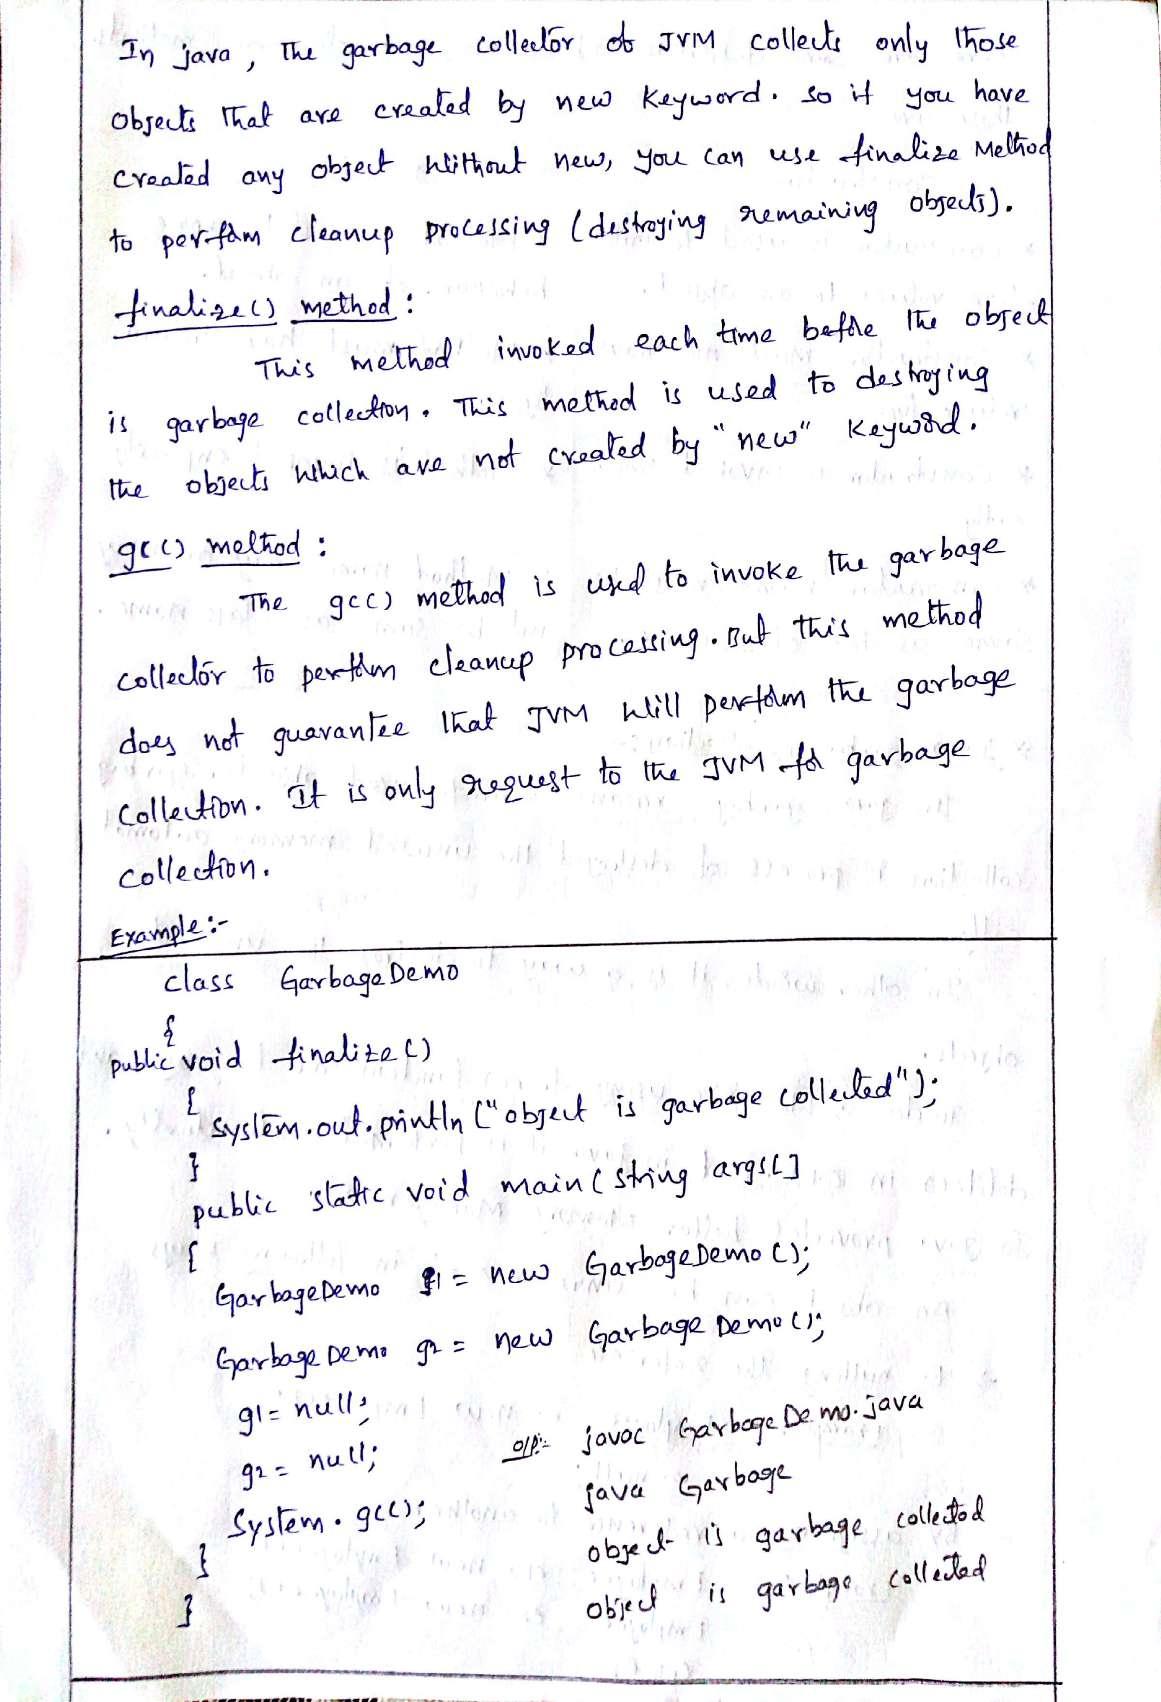 In java, The garbage collector of JVM collects only those
objects that are created by new keyword. so if you have
created any object without new, you can use finalize Method
to perform cleanup processing (destroying remaining objects).
finalize() method :
This method invoked each time before the object
is garbage collection. This method is used to destroying
the objects which are not created by "new" keyword.
gc() method :
The gc() method is used to invoke the garbage
collector to perform cleanup processing. But this method
does not guarantee that JVM will perform the garbage
collection. It is only request to the JVM for garbage
collection.
Example :-
class GarbageDemo
{
public void finalize()
{
System.out.println ("object is garbage collected");
}
public static void main(string args[]
{
GarbageDemo g1 = new GarbageDemo();
GarbageDemo g2 = new GarbageDemo();
g1 = null;
g2 = null;
System.gc();
}
}
o/p:- javac GarbageDemo.java
java Garbage
object is garbage collected
object is garbage collected